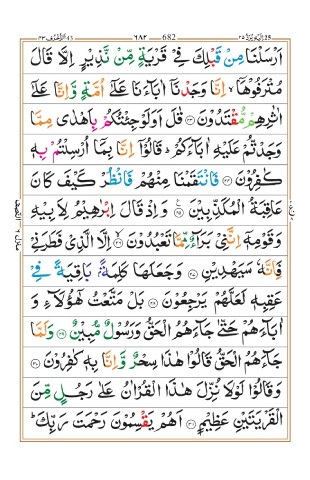 الزخرف ٤٣ ٦٨٢ 682 اليه يرد ٢٥
اَرْسَلْنَا مِنْ قَبْلِكَ فِيْ قَرْيَةٍ مِّنْ نَّذِيْرٍ اِلَّا قَالَ
مُتْرَفُوْهَاۤ ۙ اِنَّا وَجَدْنَاۤ اٰبَآءَنَا عَلٰۤى اُمَّةٍ وَّاِنَّا عَلٰۤى
اٰثٰرِهِمْ مُّقْتَدُوْنَ ﴿۲۳﴾ قٰلَ اَوَلَوْ جِئْتُكُمْ بِاَهْدٰى مِمَّا
وَجَدْتُّمْ عَلَيْهِ اٰبَآءَكُمْ ؕ قَالُوْۤا اِنَّا بِمَاۤ اُرْسِلْتُمْ بِهٖ
كٰفِرُوْنَ ﴿۲۴﴾ فَانْتَقَمْنَا مِنْهُمْ فَانْظُرْ كَيْفَ كَانَ
عَاقِبَةُ الْمُكَذِّبِيْنَ ﴿۲۵﴾ وَاِذْ قَالَ اِبْرٰهِيْمُ لِاَبِيْهِ
وَقَوْمِهٖۤ اِنَّنِيْ بَرَآءٌ مِّمَّا تَعْبُدُوْنَ ﴿۲۶﴾ اِلَّا الَّذِيْ فَطَرَنِيْ
فَاِنَّهٗ سَيَهْدِيْنِ ﴿۲۷﴾ وَجَعَلَهَا كَلِمَةًۢ بَاقِيَةً فِيْ
عَقِبِهٖ لَعَلَّهُمْ يَرْجِعُوْنَ ﴿۲۸﴾ بَلْ مَتَّعْتُ هٰۤؤُلَآءِ وَ
اٰبَآءَهُمْ حَتّٰى جَآءَهُمُ الْحَقُّ وَرَسُوْلٌ مُّبِيْنٌ ﴿۲۹﴾ وَلَمَّا
جَآءَهُمُ الْحَقُّ قَالُوْا هٰذَا سِحْرٌ وَّاِنَّا بِهٖ كٰفِرُوْنَ ﴿۳۰﴾
وَقَالُوْا لَوْلَا نُزِّلَ هٰذَا الْقُرْاٰنُ عَلٰى رَجُلٍ مِّنَ
الْقَرْيَتَيْنِ عَظِيْمٍ ﴿۳۱﴾ اَهُمْ يَقْسِمُوْنَ رَحْمَتَ رَبِّكَ ؕ